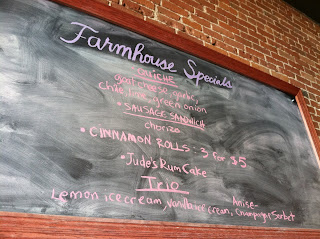 Farmhouse Specials
QUICHE
goat cheese, garlic,
green onion
• SAUSAGE SANDWICH
chorizo
• CINNAMON ROLLS - 3 for $5
• Jude's Rum Cake
Trio
Lemon ice cream, vanilla ice cream, Anise-
Champagne Sorbet